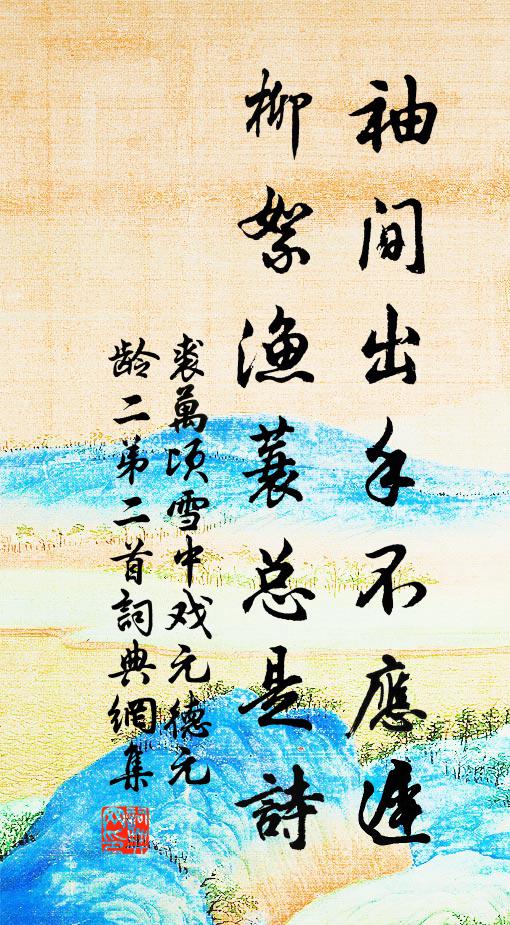 袖間出手不應遲
柳絮漁蓑总是詩
裘萬頃雪中戏元德元
龄二弟二首詞典網集